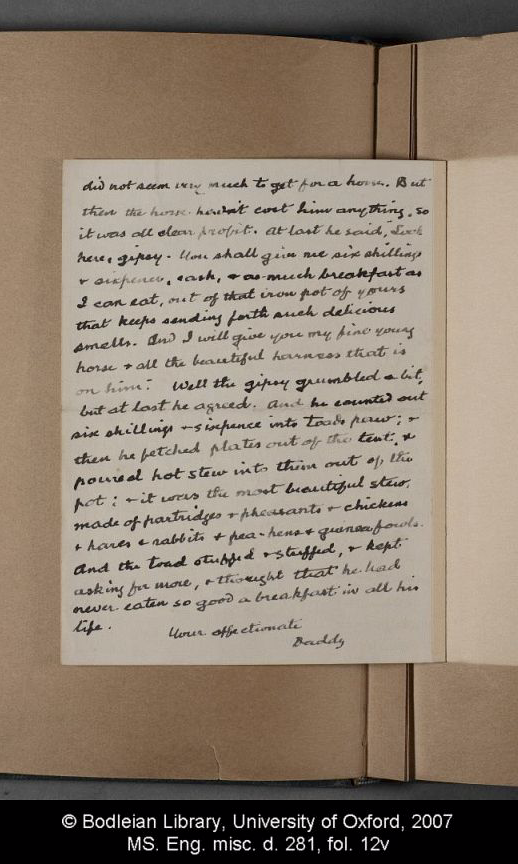 did not seem very much to get for a horse. But
then the horse hadn't cost him anything, so
it was all clear profit. At last he said, "Look
here, gipsy. You shall give me six shillings
& sixpence, cash, & as much breakfast as
I can eat, out of that iron pot of yours
that keeps sending forth such delicious
smells. And I will give you my fine young
horse & all the beautiful harness that is
on him". Well the gipsy grumbled a bit,
but at last he agreed. And he counted out
six shillings & sixpence into toads paw; &
then he fetched plates out of the tent, &
poured hot stew into them out of the
pot; & it was the most beautiful stew,
made of partridges & pheasants & chickens
& hares & rabbits & pea-hens & guinea fowls.
And the toad stuffed & stuffed, & kept
asking for more, & thought that he had
never eaten so good a breakfast in all his
life.
Your affectionate
Daddy
© Bodleian Library, University of Oxford, 2007
MS. Eng. misc. d. 281, fol. 12v